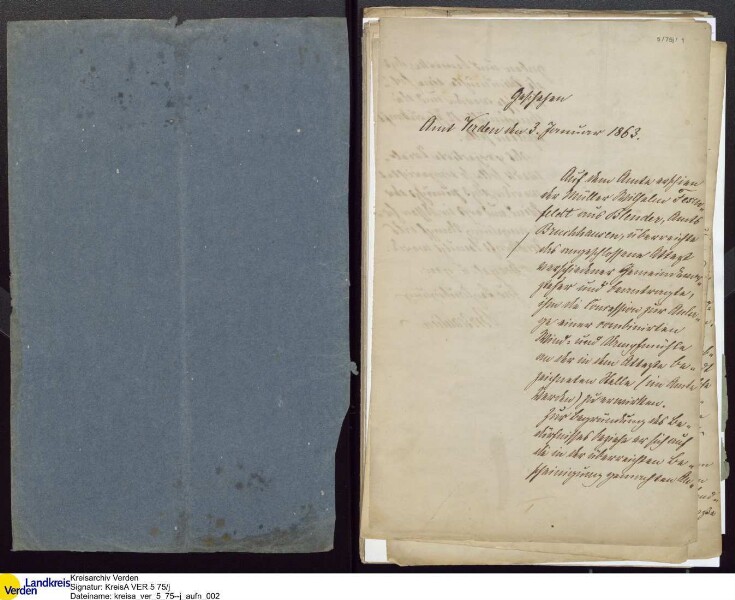 Geschehen
Amt Verden den 3. Januar 1863.
Auf dem Amte erschien
der Müller Wilhelm
feldt aus Blender, Amts
Bruchhausen, überreichte
das angeschlossene Attest
verschiedener Gemeindevor-
steher und beantragte,
ihm die Concession zur Anla-
ge einer combinirten
Wind- und Dampfmühle
an der in dem Atteste be-
zeichneten Stelle (im Amte
Verden) zu erwirken.
Zur Begründung des Be-
dürfnisses beziehe er sich auf
die in der überreichten Be-
scheinigung gemachten An-
Landkreis
Verden
Kreisarchiv Verden
Signatur: KreisA VER 5 75/j
Dateiname: kreisa_ver_5_75--j_aufn_002